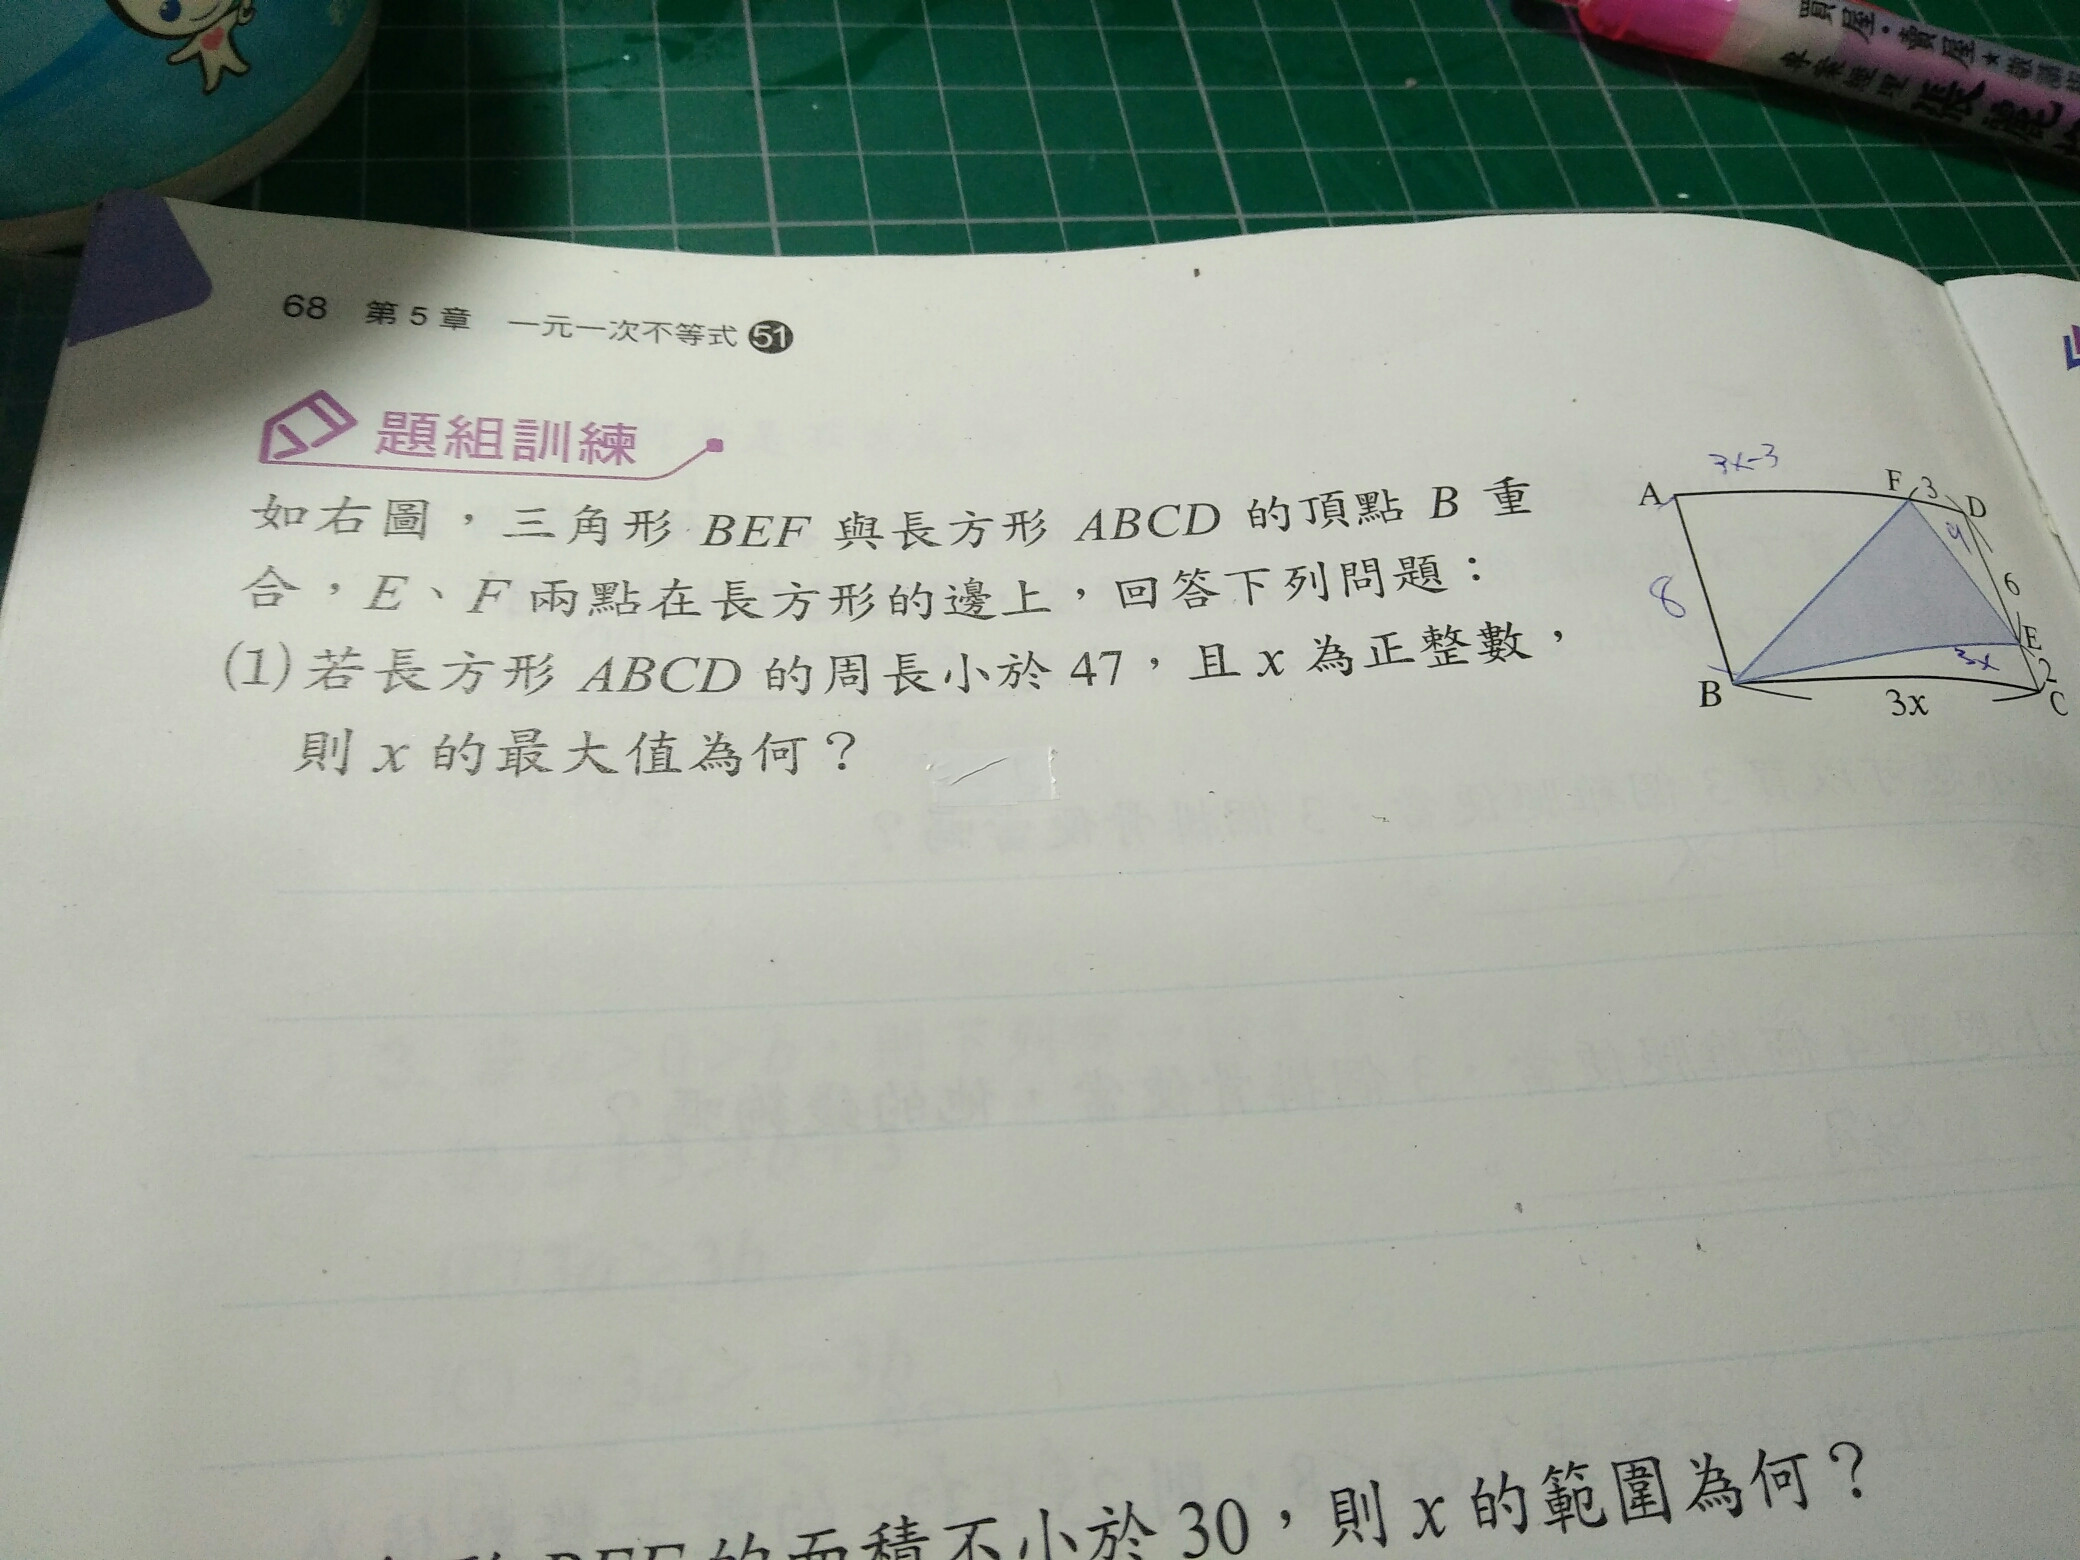 買屋·賣屋★敬請
專案經理 張
68 第5章 一元一次不等式 51
題組訓練
如右圖，三角形 BEF 與長方形 ABCD 的頂點 B 重
合，E、F 兩點在長方形的邊上，回答下列問題：
(1)若長方形 ABCD 的周長小於 47，且 x 為正整數，
則 x 的最大值為何？
3x-3
A F 3 D
4
8 6
E
3x 2
B 3x C
BEF 的面積不小於 30，則 x 的範圍為何？